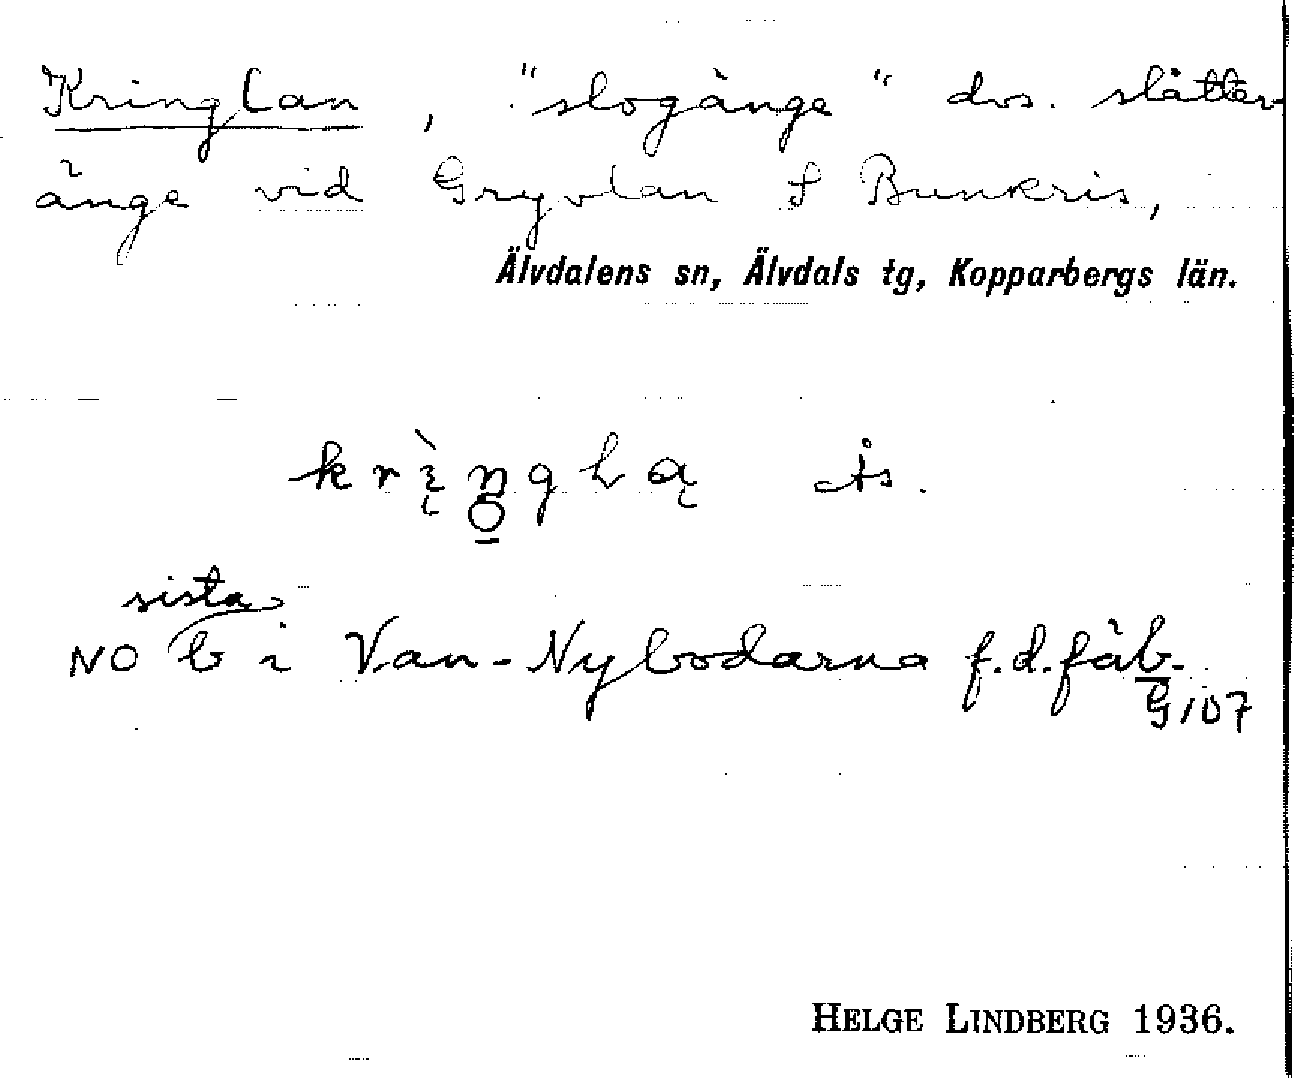 Kringlan, "slogänge" dvs. slåtter
änge vid Gryvlan S Bunkris,
Älvdalens sn, Älvdals tg, Kopparbergs län.
ås.
sista
NO b i Van-Nybodarna f.d. fäb.
G 107
HELGE LINDBERG 1936.